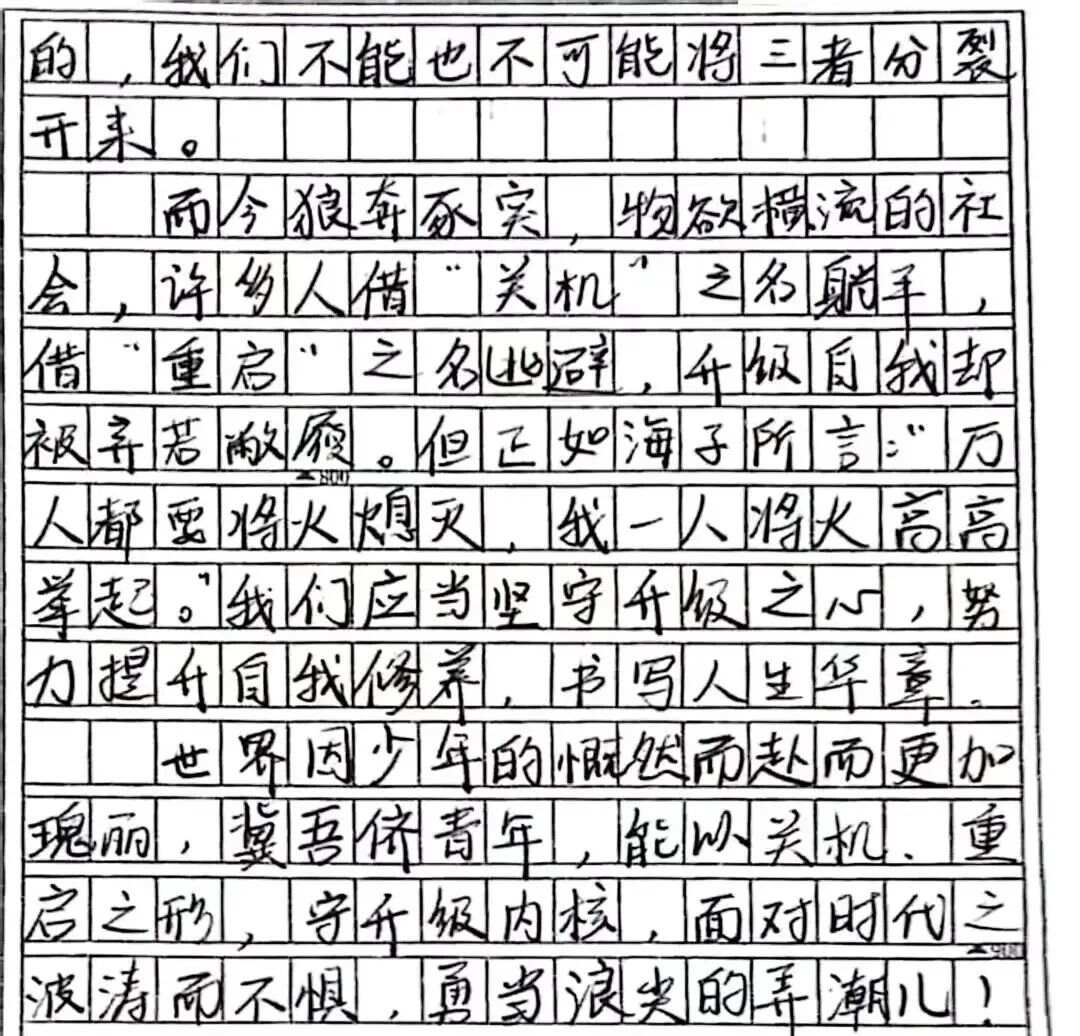 的,我们不能也不可能将三者分裂
开来。
而今狼奔豕突,物欲横流的社
会,许多人借“关机”之名躺平,
借“重启”之名逃避,升级自我却
被弃若敝屣。但正如海子所言:“万
800
人都要将火熄灭,我一人将火高高
举起。”我们应当坚守升级之心,努
力提升自我修养,书写人生华章.
世界因少年的慨然而赴而更加
瑰丽,冀吾侪青年,能以关机、重
启之形,守升级内核,面对时代之
900
波涛而不惧,勇当浪尖的弄潮儿!